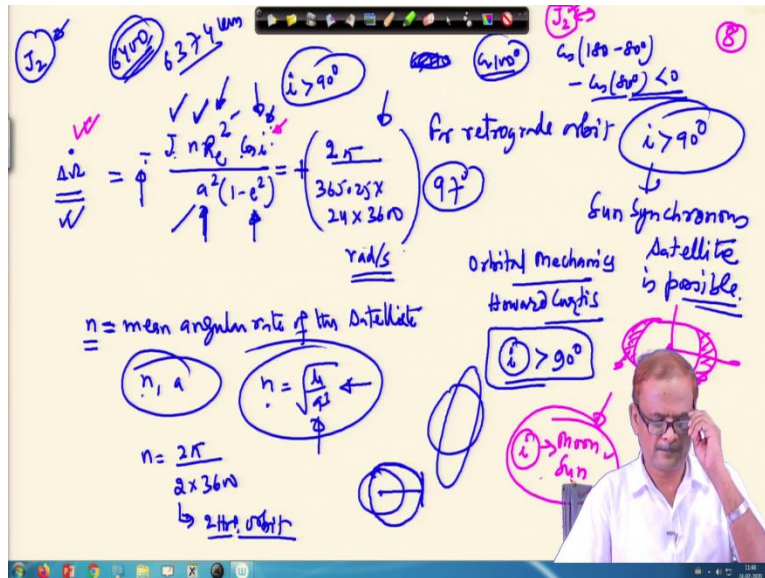 J₂
6400
6374 km
i > 90°
Cos 100°
J₂
Cos (180 - 80°)
- Cos (80°) < 0
8
ΔΩ̇ = - J n Rₑ² Cos i / a² (1 - e²) = + ( 2π / 365.25 x 24 x 3600 ) rad/s
97°
For retrograde orbit
i > 90°
Sun Synchronous
Satellite
is possible.
Orbital Mechanics
Howard Curtis
i > 90°
n = mean angular rate of the Satellite
n, a
n = √(μ / a³)
n = 2π / 2 x 3600
2 Hr. orbit
i → Moon
Sun